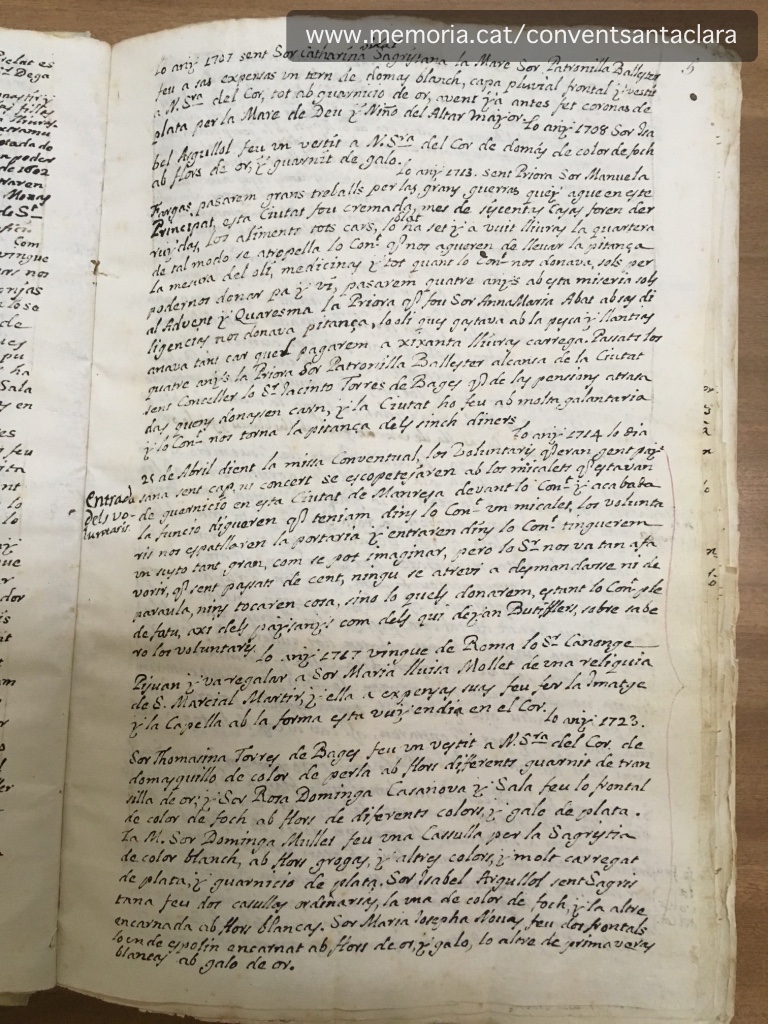 www.memoria.cat/conventsantaclara
5
Lo any 1707 sent Sor Catharina Sagristana la Mare Sor Patronilla Ballester
feu a sas expensas un tern de domas blanch, capa pluvial frontal y vestit
a N. Sra del Cor, tot ab guarnicio de or, avent ya antes fet coronas de
plata per la Mare de Deu y Niño del Altar mayor. Lo any 1708 Sor Isa
bel Argullol feu un vestit a N. Sra del Cor de domás de color de foch
ab flors de or, y guarnit de galo. Lo any 1713. sent Priora Sor Manuela
Fargas, pasarem grans treballs per las grans guerras quey ague en este
Principat, esta Ciutat fou cremada, mes de sijcentas Casas foren der
ruydas, los aliments tots cars, lo blat ha set y a vuit lliuras la quartera
de tal modo se atropella lo Cont. q. nos agueren de llevar la pitança
la mesura del oli, medicinas y tot quant lo Cont. nos donava, sols per
podernos donar pa y vi, pasarem quatre anys ab esta miseria sols
al Advent y Quaresma la Priora q. fou Sor Anna Maria Abat ab sas di
ligencias nos donava pitança, lo oli ques gastava ab la pesca y llantias
anava tant car quel pagarem a xixanta lliuras carrega. Passats los
quatre anys la Priora Sor Patronilla Ballester alcansa de la Ciutat
sent Conceller lo Sr. Jacinto Torres de Bages q. de las pensions atrasa
das quens donassen carn, y la Ciutat ho feu ab molta galantaria
y lo Cont. nos torna la pitança dels sinch diners. Lo any 1714 lo dia
25 de Abril dient la missa Conventual, los Voluntaris q. eran gent pay
Entrada dels vo- luntaris
sana sent cap, ni concert se escopetejaren ab los micalets q. estavan
de guarnicio en esta Ciutat de Manresa devant lo Cont. y acabada
la funcio digueren q. teniam dins lo Cont. un micalet, los volunta
ris nos espatllaren la portaria y entraren dins lo Cont. tinguerem
un susto tant gran, com se pot imaginar, pero lo Sr. nos va tan afa
vorir, q. sent passats de cent, ningu se atrevi a desmandarse ni de
paraula, nins tocaren cosa, sino lo quels donarem, estant lo Cont. ple
de fatu, axi dels paysans com dels qui deyan Butifflers, sobre sabe
ro los voluntaris. Lo any 1717 vingue de Roma lo Sr. Canonge
Pijuan y va regalar a Sor Maria Lluisa Mollet de una reliquia
de S. Marcial Martir, y ella a expensas suas feu fer la Imatje
y la Capella ab la forma esta vuy en dia en el Cor. Lo any 1723.
Sor Thomasina Torres de Bages feu un vestit a N. Sra del Cor de
domasquillo de color de perla ab flors diferents guarnit de tran
silla de or; y Sor Rosa Dominga Casanova y Sala feu lo frontal
de color de foch ab flors de diferents colors, y galo de plata.
La M. Sor Dominga Mullet feu una Cassulla per la Sagristia
de color blanch, ab flors grogas, y altres colors, y molt carregat
de plata, y guarnicio de plata. Sor Isabel Argullol sent Sagris
tana feu dos casullas ordinarias, la una de color de foch, y la altre
encarnada ab flors blancas. Sor Maria Josepha Novas feu dos frontals
lo un de espolin encarnat ab flors de or, y galo, lo altre de primaveras
blancas ab galo de or.